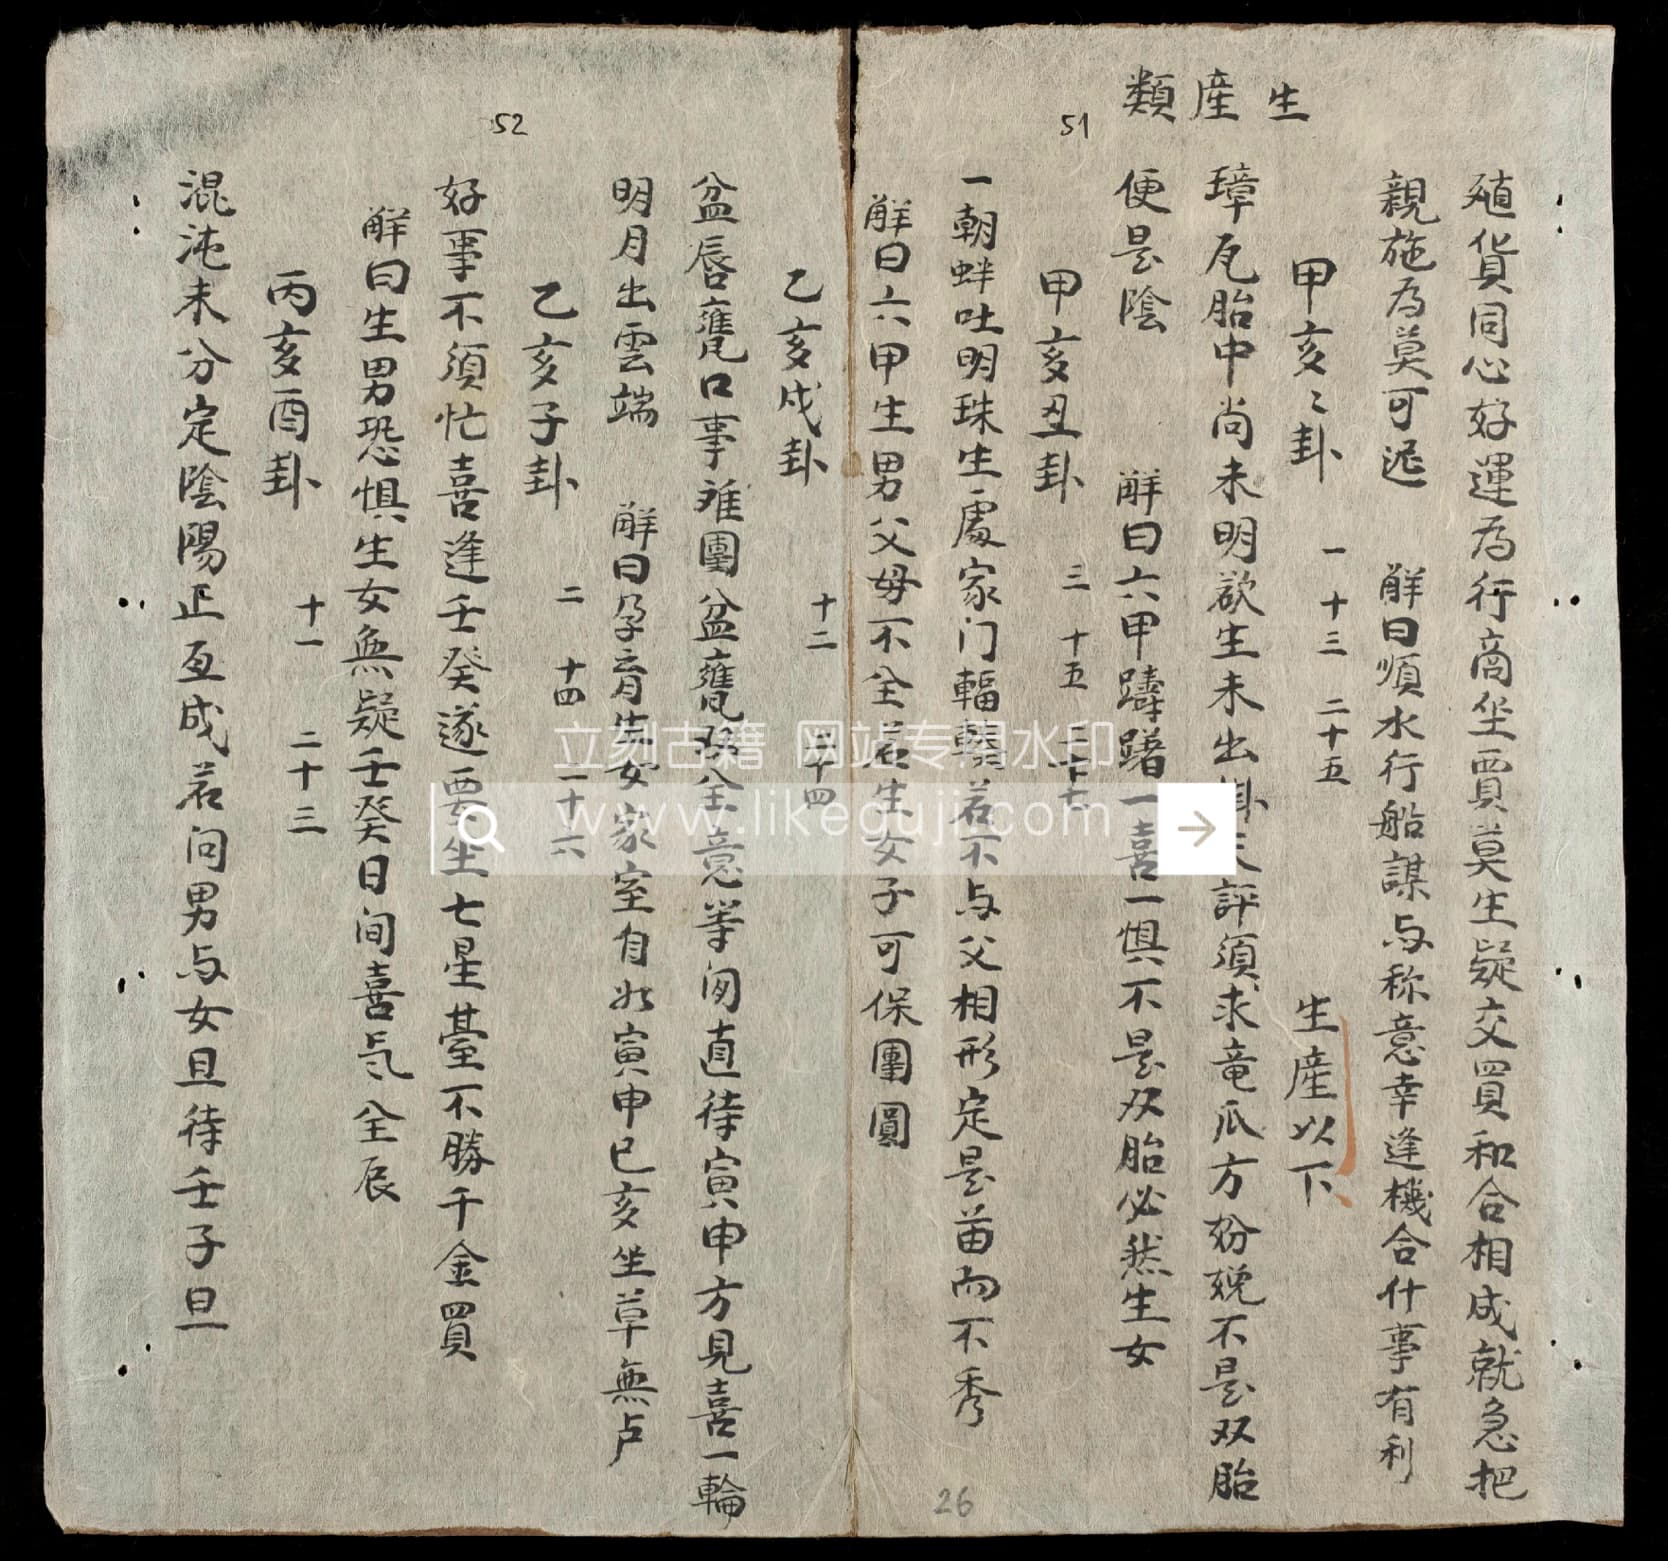 生産類
51
殖貨同心好運為行商坐賈莫生疑交買和合相成就急把
親施為莫可遲 解曰順水行船謀与称意幸逢機合什事有利
甲亥〻卦 一 十三 二十五 生産以下
璋瓦胎中尚未明欲生未出評須求竜爪方娩不是双胎
便是陰 解曰六甲躊躇一喜一惧不是双胎必然生女
甲亥丑卦 三 十五 二十七
一朝蚌吐明珠生處家门輻輳若不与父相形定是苗而不秀
解曰六甲生男父母不全若生女子可保團圓
乙亥戌卦 十二 二十四
盆唇甕口事难團盆甕全意直待寅申方見喜一輪
明月出雲端 解曰孕育生女家室自如寅申巳亥坐草無占
乙亥子卦 二 十四 二十六
好事不須忙喜逢壬癸遂要坐七星臺不勝千金買
解曰生男恐惧生女無疑壬癸日间喜气全辰
丙亥酉卦 十一 二十三
混沌未分定陰陽正互成若问男与女且待壬子旦
52
26
立刻古籍 网站专用水印
www.likeguji.com